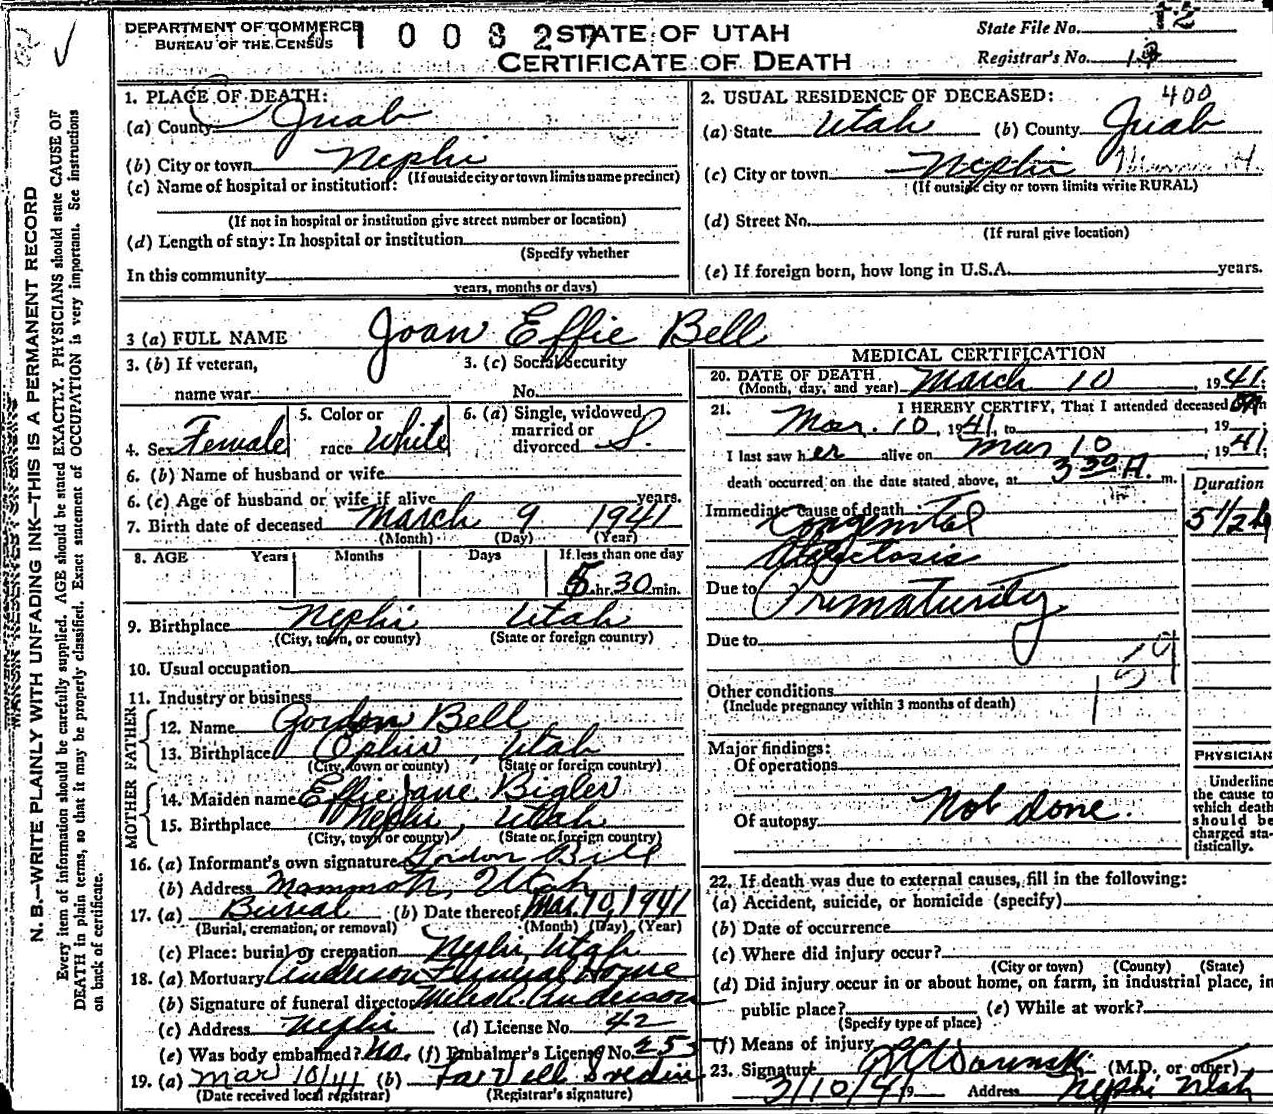 DEPARTMENT OF COMMERCE
BUREAU OF THE CENSUS
STATE OF UTAH
CERTIFICATE OF DEATH
State File No. 12
Registrar's No. 13
N. B.—WRITE PLAINLY WITH UNFADING INK—THIS IS A PERMANENT RECORD
Every item of information should be carefully supplied. AGE should be stated EXACTLY. PHYSICIANS should state CAUSE OF
DEATH in plain terms, so that it may be properly classified. Exact statement of OCCUPATION is very important. See instructions
on back of certificate.
1. PLACE OF DEATH:
(a) County Juab
(b) City or town Nephi
(If outside city or town limits name precinct)
(c) Name of hospital or institution:
(If not in hospital or institution give street number or location)
(d) Length of stay: In hospital or institution
(Specify whether
In this community
years, months or days)
2. USUAL RESIDENCE OF DECEASED: 400
(a) State Utah (b) County Juab
(c) City or town Nephi
(If outside city or town limits write RURAL)
(d) Street No.
(If rural give location)
(e) If foreign born, how long in U.S.A. years.
3 (a) FULL NAME Joan Effie Bell
3. (b) If veteran, 3. (c) Social Security
name war No.
4. Sex Female 5. Color or race White 6. (a) Single, widowed, married or divorced S.
6. (b) Name of husband or wife
6. (c) Age of husband or wife if alive years.
7. Birth date of deceased March 9 1941
(Month) (Day) (Year)
8. AGE Years Months Days If less than one day
5 hr. 30 min.
9. Birthplace Nephi Utah
(City, town, or county) (State or foreign country)
10. Usual occupation
11. Industry or business
FATHER
12. Name Gordon Bell
13. Birthplace Ophir, Utah
(City, town or county) (State or foreign country)
MOTHER
14. Maiden name Effie Jane Bigler
15. Birthplace Nephi, Utah
(City, town or county) (State or foreign country)
16. (a) Informant's own signature Gordon Bell
(b) Address Mammoth, Utah
17. (a) Burial (b) Date thereof Mar. 10, 1941
(Burial, cremation, or removal) (Month) (Day) (Year)
(c) Place: burial or cremation Nephi, Utah
18. (a) Mortuary Anderson Funeral Home
(b) Signature of funeral director Anderson
(c) Address Nephi (d) License No. 42
(e) Was body embalmed? No. (f) Embalmer's License No. 253
19. (a) Mar 10/41 (b)
(Date received local registrar) (Registrar's signature)
MEDICAL CERTIFICATION
20. DATE OF DEATH
(Month, day, and year) March 10, 1941;
21. I HEREBY CERTIFY, That I attended deceased
Mar. 10, 1941, to , 19 ;
I last saw her alive on Mar 10, 1941;
death occurred on the date stated above, at 3 30 A. m.
Duration
Immediate cause of death Congenital 5 1/2 h
Atelectosis
Due to Prematurity
Due to
159
Other conditions
(Include pregnancy within 3 months of death)
Major findings:
Of operations
Of autopsy Not done.
PHYSICIAN
Underline
the cause to
which death
should be
charged sta-
tistically.
22. If death was due to external causes, fill in the following:
(a) Accident, suicide, or homicide (specify)
(b) Date of occurrence
(c) Where did injury occur?
(City or town) (County) (State)
(d) Did injury occur in or about home, on farm, in industrial place, in
public place? (e) While at work?
(Specify type of place)
(f) Means of injury
23. Signature (M.D. or other)
3/10/41 19 Address Nephi Utah